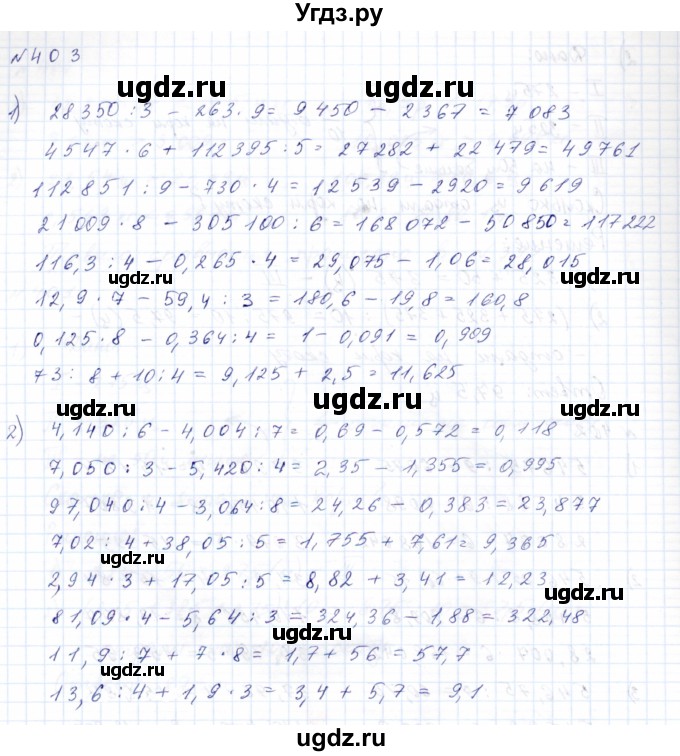 Угдз.ру
N 403
ugdz.ru ugdz.ru
1) 28350 : 3 - 263 · 9 = 9 450 - 2367 = 7 083
4547 · 6 + 112395 : 5 = 27282 + 22 479 = 49761
112851 : 9 - 730 · 4 = 12539 - 2920 = 9 619
ugdz.ru
21009 · 8 - 305100 : 6 = 168 072 - 50 850 = 117222
116,3 : 4 - 0,265 · 4 = 29,075 - 1,06 = 28,015
ugdz.ru ugdz.ru
12,9 · 7 - 59,4 : 3 = 180,6 - 19,8 = 160,8
0,125 · 8 - 0,364 : 4 = 1 - 0,091 = 0,909
ugdz.ru
73 : 8 + 10 : 4 = 9,125 + 2,5 = 11,625
ugdz.ru ugdz.ru ugdz.ru
2) 4,140 : 6 - 4,004 : 7 = 0,69 - 0,572 = 0,118
7,050 : 3 - 5,420 : 4 = 2,35 - 1,355 = 0,995
ugdz.ru
97,040 : 4 - 3,064 : 8 = 24,26 - 0,383 = 23,877
7,02 : 4 + 38,05 : 5 = 1,755 + 7,61 = 9,365
ugdz.ru
2,94 · 3 + 17,05 : 5 = 8,82 + 3,41 = 12,23
ugdz.ru
81,09 · 4 - 5,64 : 3 = 324,36 - 1,88 = 322,48
ugdz.ru
11,9 : 7 + 7 · 8 = 1,7 + 56 = 57,7
ugdz.ru ugdz.ru
13,6 : 4 + 1,9 · 3 = 3,4 + 5,7 = 9,1
ugdz.ru